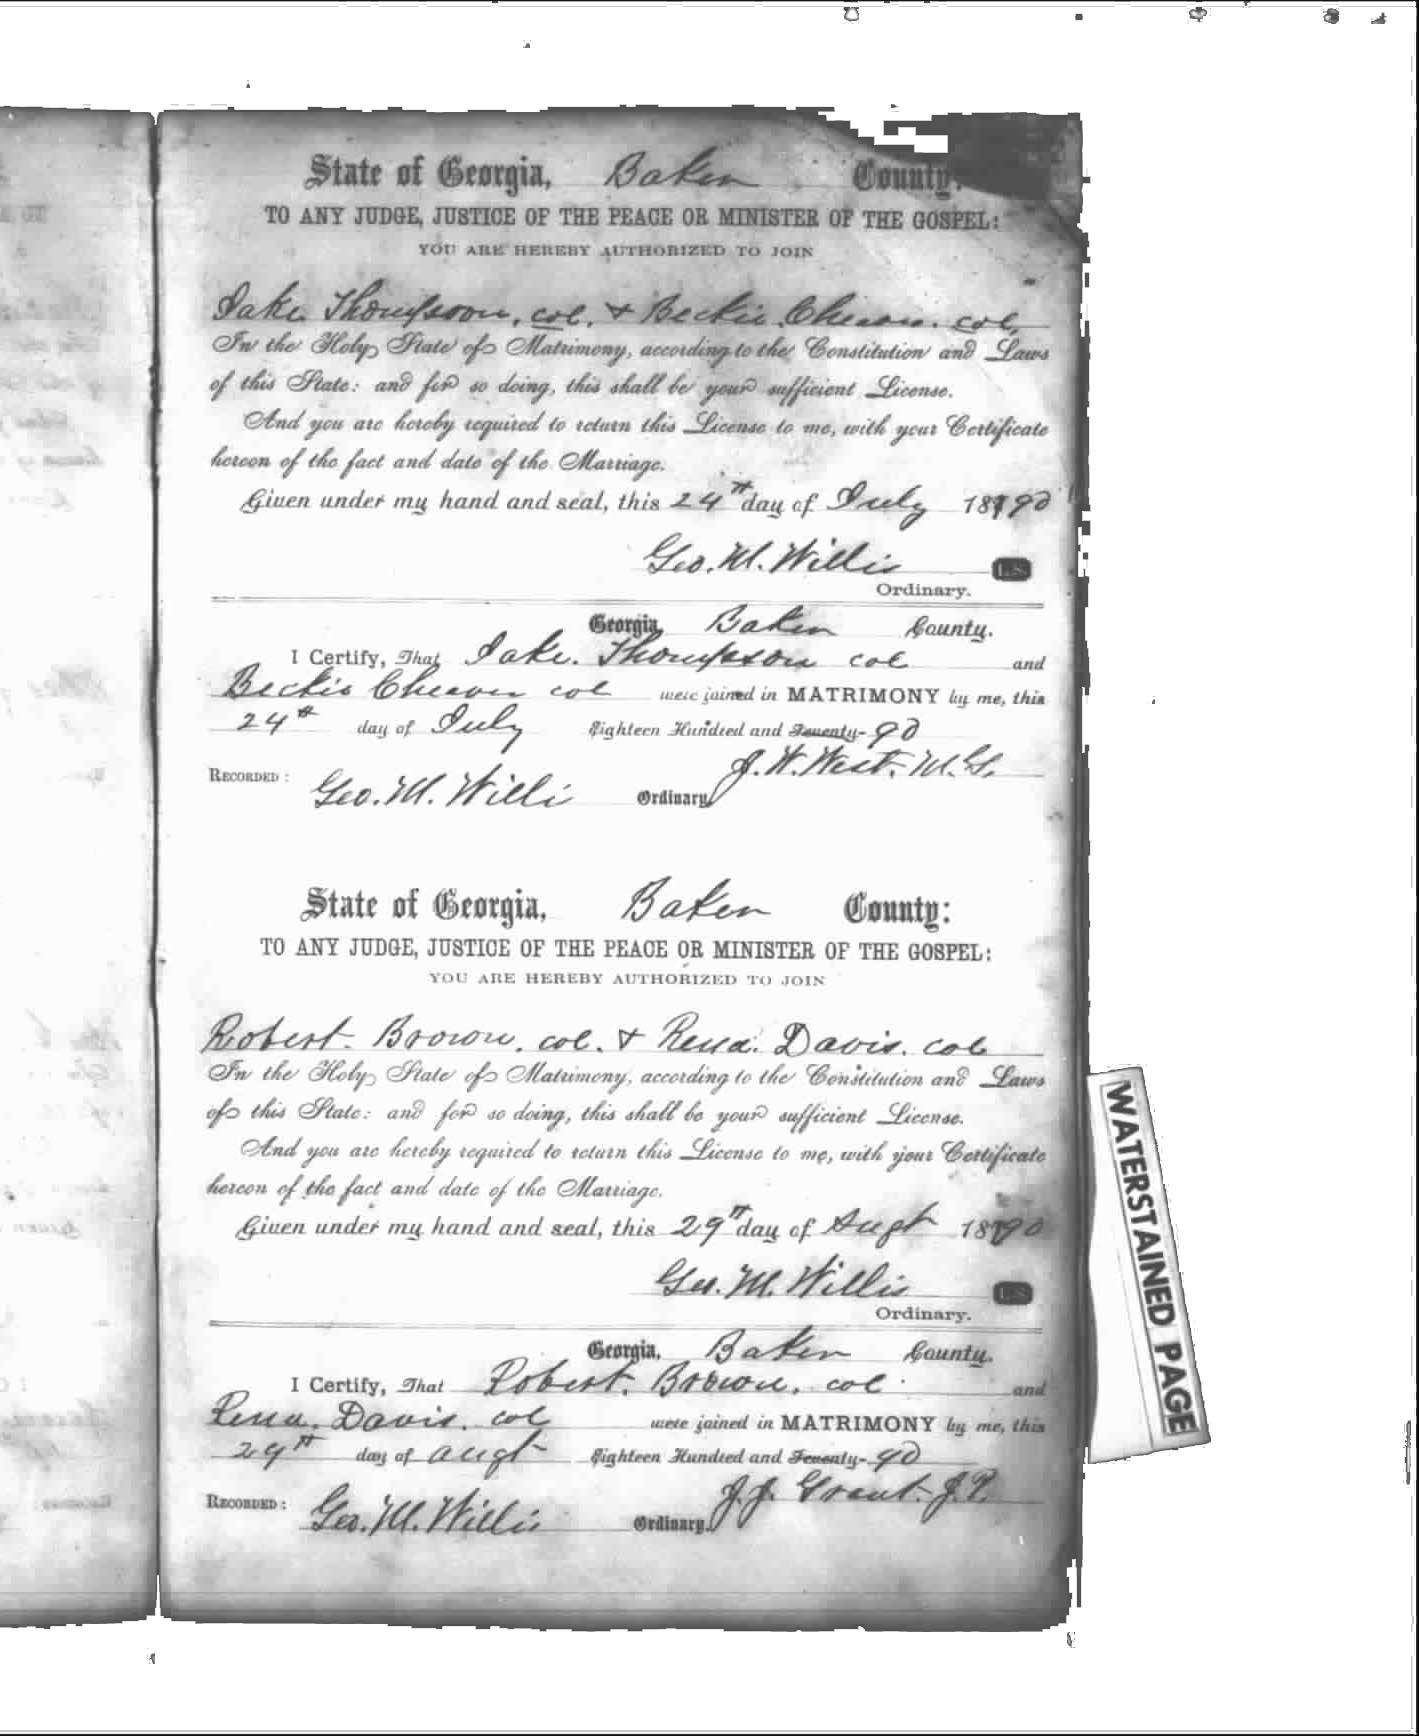 State of Georgia, Baker County:
TO ANY JUDGE, JUSTICE OF THE PEACE OR MINISTER OF THE GOSPEL:
YOU ARE HEREBY AUTHORIZED TO JOIN
Jake Thompson, col. & Beckie Cheaver. col.
In the Holy State of Matrimony, according to the Constitution and Laws
of this State: and for so doing, this shall be your sufficient License.
And you are hereby required to return this License to me, with your Certificate
hereon of the fact and date of the Marriage.
Given under my hand and seal, this 24th day of July 1890
Geo. M. Willis L.S.
Ordinary.
Georgia, Baker County.
I Certify, That Jake. Thompson col and
Beckie Cheaver col were joined in MATRIMONY by me, this
24th day of July Eighteen Hundred and Seventy- 90
J. W. West. M. G.
RECORDED: Geo. M. Willis Ordinary.
State of Georgia, Baker County:
TO ANY JUDGE, JUSTICE OF THE PEACE OR MINISTER OF THE GOSPEL:
YOU ARE HEREBY AUTHORIZED TO JOIN
Robert Brown. col. & Rena. Davis. col
In the Holy State of Matrimony, according to the Constitution and Laws
of this State: and for so doing, this shall be your sufficient License.
And you are hereby required to return this License to me, with your Certificate
hereon of the fact and date of the Marriage.
Given under my hand and seal, this 29th day of Augt 1890
Geo. M. Willis L.S.
Ordinary.
Georgia, Baker County.
I Certify, That Robert. Brown. col. and
Rena. Davis. col were joined in MATRIMONY by me, this
29th day of Augt Eighteen Hundred and Seventy- 90
J. J. Grant. J. P.
RECORDED: Geo. M. Willis Ordinary.
WATERSTAINED PAGE